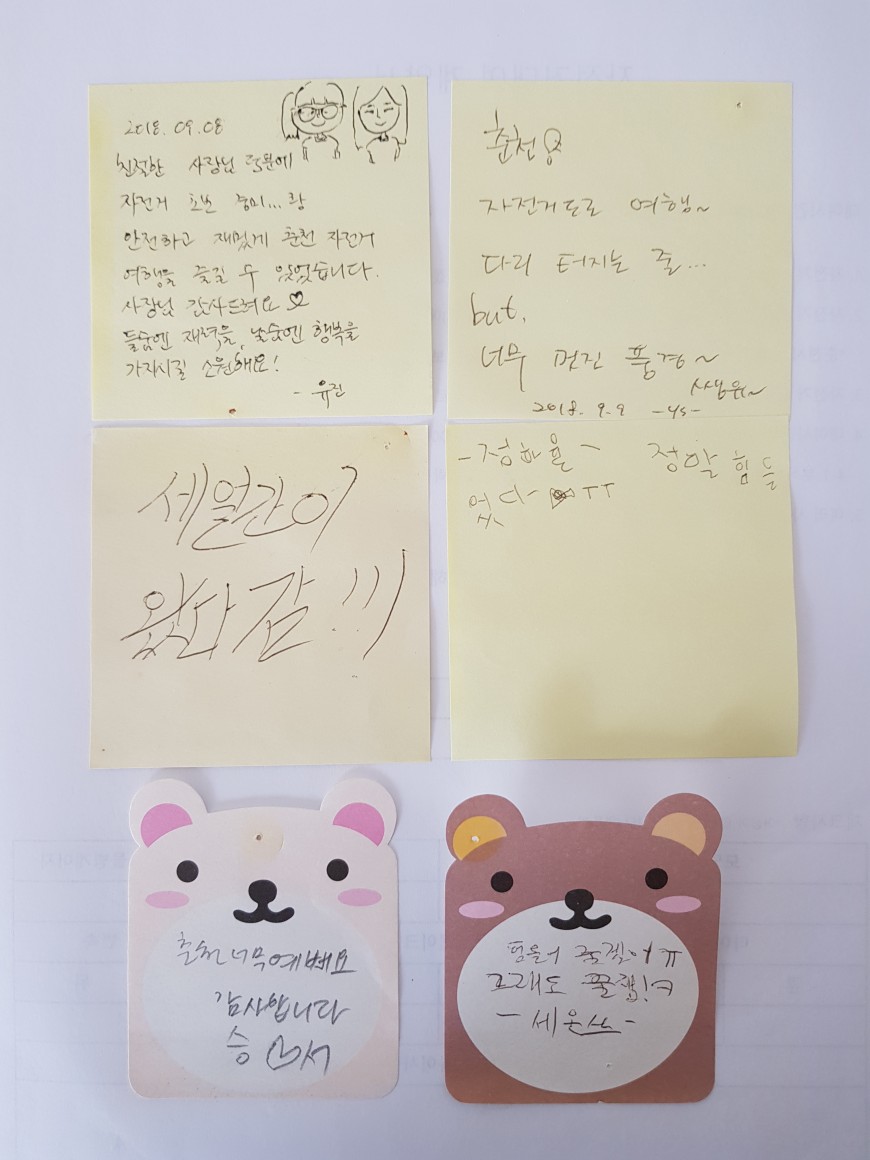 2018. 09. 08
친절한 사장님 덕분에
자전거 초보 중미...랑
안전하고 재밌게 춘천 자전거
여행을 즐길 수 있었습니다.
사장님 감사드려요 ♡
들숨엔 재력을, 날숨엔 행복을
가지시길 소원해요!
- 유진
춘천
자전거도로 여행~
다리 터지는 줄...
but,
너무 멋진 풍경~
쌩유~
2018. 9. 9 -ys-
세월간이
왔다 감!!!
정말 힘들
었다 ㅜㅜ
춘천너무예뻐요
감사합니다
승♡서
그래도 꿀잼!ㅋ